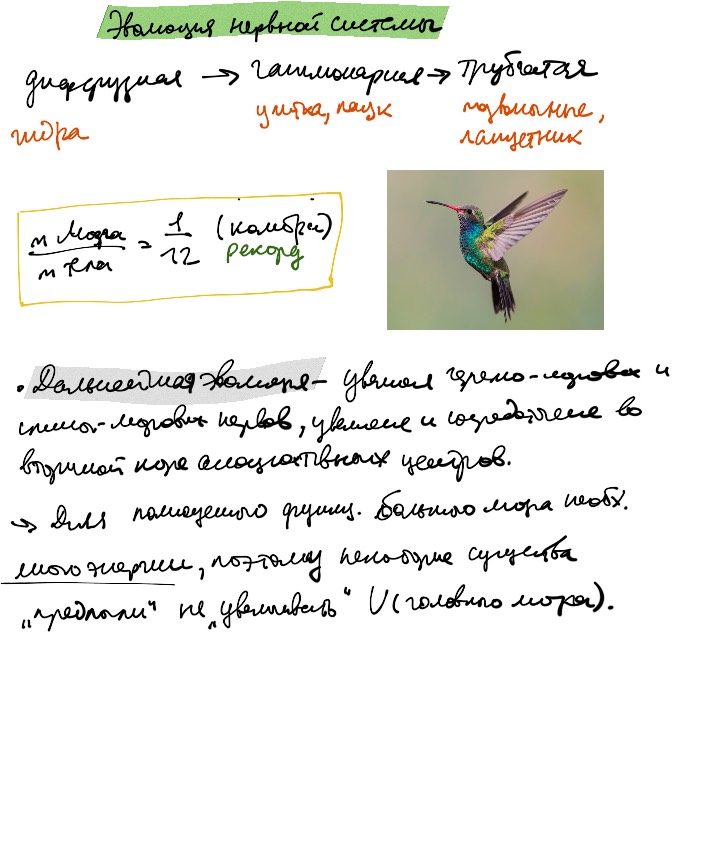 Эволюция нервной системы
диффузная → ганглионарная → трубчатая
гидра
улитка, паук
позвоночные,
ланцетник
m мозга / m тела = 1/12 (колибри)
рекорд
• Дальнейшая эволюция – увелич черепно-мозговых и
спинно-мозговых нервов, увеличение и сосредоточене во
вторичной коре ассоциативных центров.
→ Для полноценного функц. большого мозга необх.
много энергии, поэтому некоторые существа
„предпочли“ не „увеличивать“ V (головного мозга).